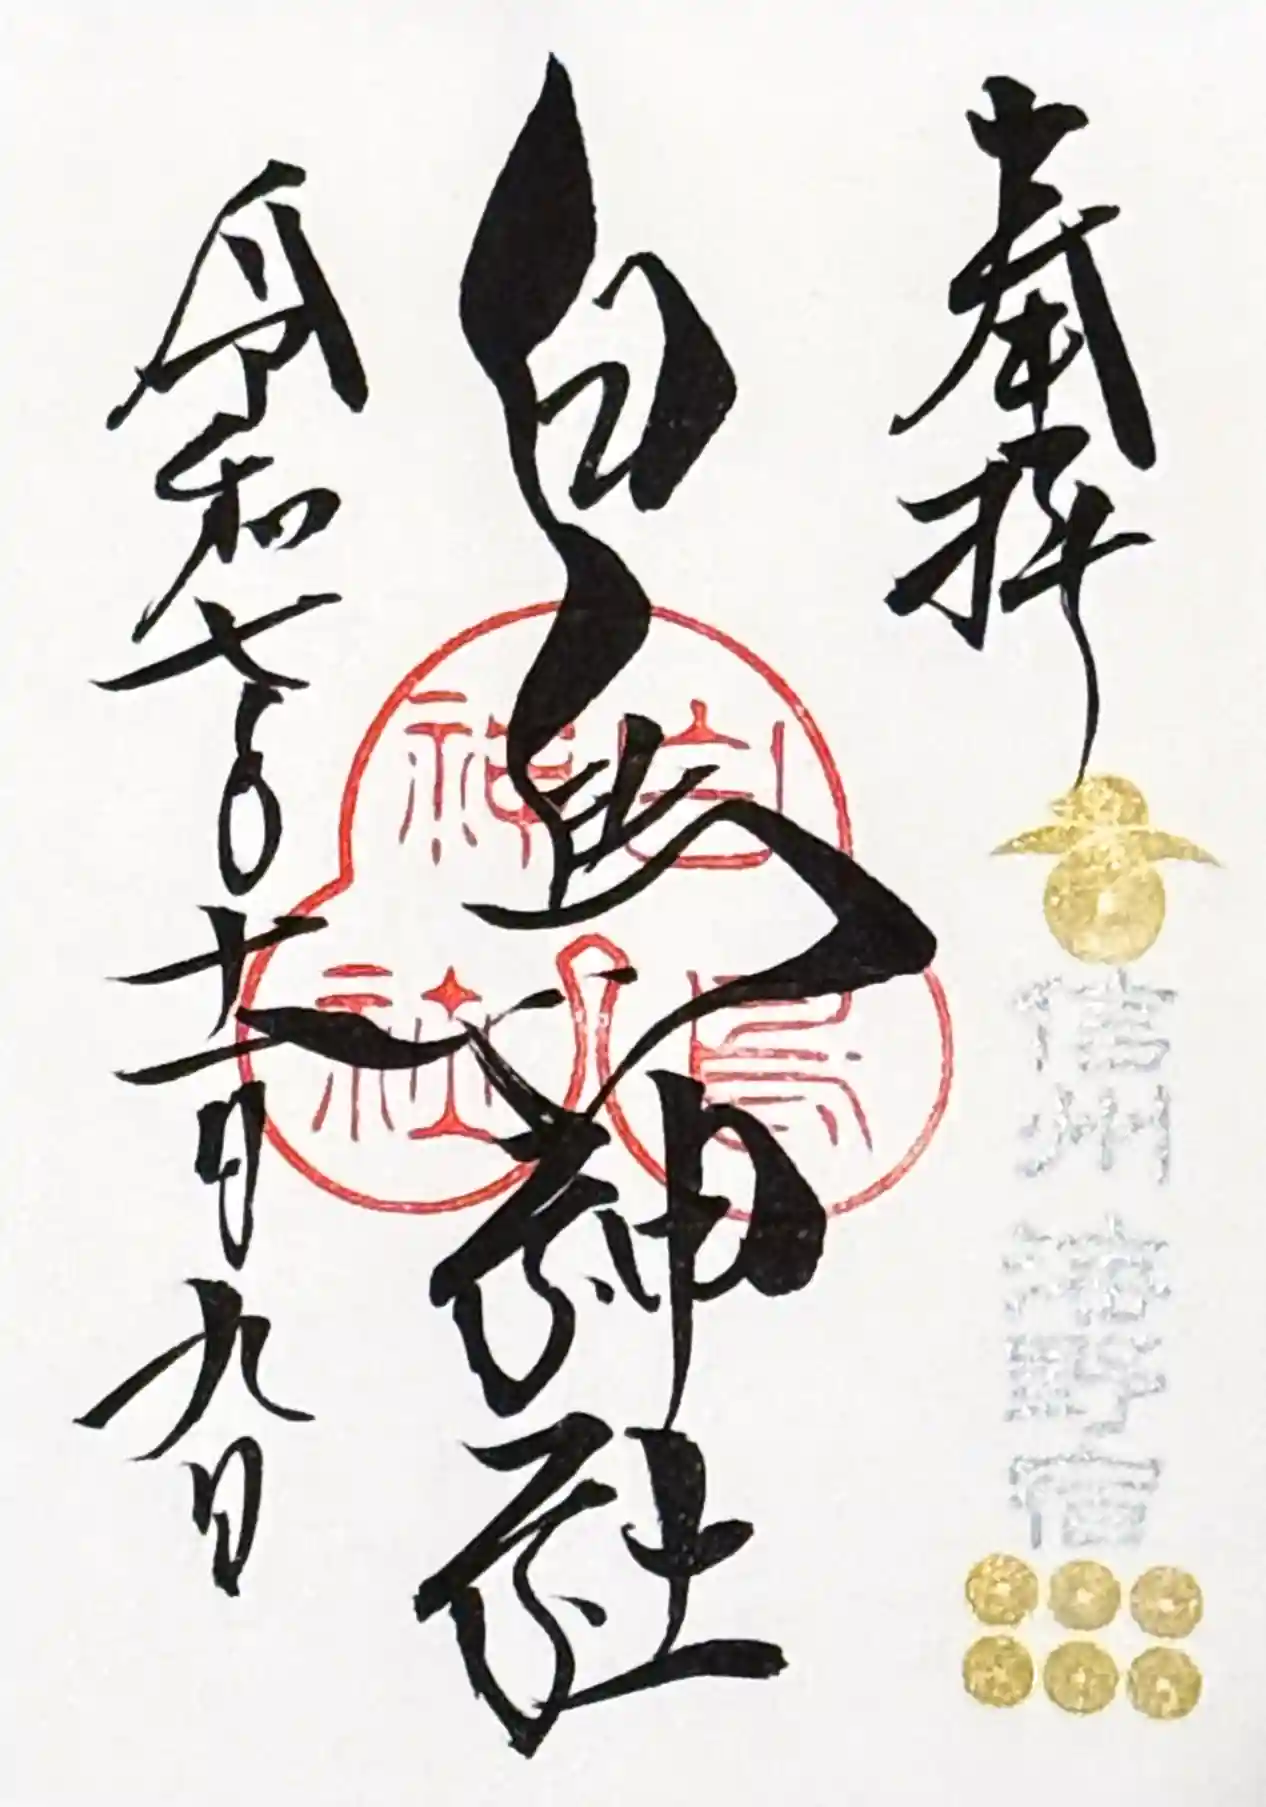 奉拝
信州 海野宿
白鳥神社
白鳥神社
令和七年十一月九日